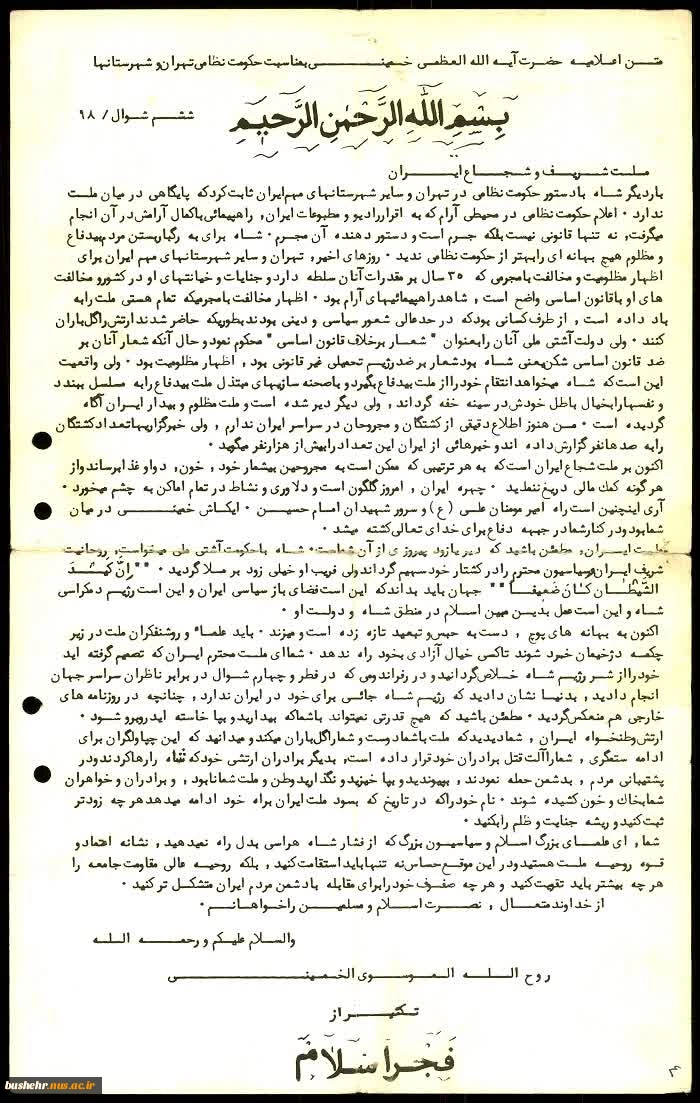 متن اعلامیه حضرت آیه الله العظمی خمینی بمناسبت حکومت نظامی تهران و شهرستانها
بِسْمِ اللهِ الرَّحْمٰنِ الرَّحیم
ششم شوال / ۹۸
ملت شریف و شجاع ایران
باردیگر شاه با دستور حکومت نظامی در تهران و سایر شهرستانهای مهم ایران ثابت کرد که پایگاهی در میان ملت
ندارد ۰ اعلام حکومت نظامی در محیطی آرام که به اقرار رادیو و مطبوعات ایران, راهپیمائی باکمال آرامش در آن انجام
میگرفت, نه تنها قانونی نیست بلکه جرم است و دستور دهنده آن مجرم ۰ شاه برای به رگبار بستن مردم بیدفاع
و مظلوم هیچ بهانه ای رابهتر از حکومت نظامی ندید ۰ روزهای اخیر, تهران و سایر شهرستانهای مهم ایران برای
اظهار مظلومیت و مخالفت با مجرمی که ۳۵ سال بر مقدرات آنان سلطه دارد و جنایات و خیانتهای او در کشور و مخالفت
های او با قانون اساسی واضح است , شاهد راهپیمائیهای آرام بود ۰ اظهار مخالفت با مجرمیکه تمام هستی ملت رابه
باد داده است , از طرف کسانی بود که در حد عالی شعور سیاسی و دینی بودند بطوریکه حاضر شدند ارتش راگل باران
کنند ۰ ولی دولت آشتی ملی آنان رابعنوان " شعار برخلاف قانون اساسی " محکوم نمود و حال آنکه شعار آنان بر
ضد قانون اساسی شکن یعنی شاه بود شعار بر ضد رژیم تحمیلی غیر قانونی بود , اظهار مظلومیت بود ۰ ولی واقعیت
این است که شاه میخواهد انتقام خود را از ملت بیدفاع بگیرد و باصحنه سازیهای مبتذل ملت بیدفاع رابه مسلسل ببندد
و نفسها رابخیال باطل خودش در سینه خفه گرداند , ولی دیگر دیر شده است و ملت مظلوم و بیدار ایران آگاه
گردیده است ۰ من هنوز اطلاع دقیقی از کشتگان و مجروحان در سراسر ایران ندارم , ولی خبرگزاریها تعداد کشتگان
رابه صدها نفر گزارش داده اند و خبرهائی از ایران این تعداد رابیش از هزار نفر میگوید ۰
اکنون بر ملت شجاع ایران است که به هر ترتیبی که ممکن است به مجروحین بیشمار خود , خون, دوا و غذا برساند و از
هر گونه کمک مالی دریغ ننماید ۰ چهره ایران , امروز گلگون است و دلاوری و نشاط در تمام اماکن به چشم میخورد ۰
آری اینچنین است راه امیر مومنان علی (ع) و سرور شهیدان امام حسین ۰ ایکاش خمینی در میان
شما بود و در کنار شما در جبهه دفاع برای خدای تعالی کشته میشد ۰
ملت ایران, مطمئن باشید که دیر یا زود پیروزی از آن شماست ۰ شاه با حکومت آشتی ملی میخواست, روحانیت
شریف ایران و سیاسیون محترم را در کشتار خود سهیم گرداند ولی فریب او خیلی زود بر ملا گردید ۰ " إِنَّ کَیْدَ
الشَّیْطَانِ کَانَ ضَعِیفاً " جهان باید بداند که این است فضای باز سیاسی ایران و این است رژیم دمکراسی
شاه و این است عمل بدین مبین اسلام در منطق شاه و دولت او ۰
اکنون به بهانه های پوچ , دست به حبس و تبعید تازه زده است و میزند ۰ باید علماء و روشنفکران ملت در زیر
چکمه دژخیمان خرد شوند تا کسی خیال آزادی بخود راه ندهد ۰ شما ای ملت محترم ایران که تصمیم گرفته اید
خود را از شر رژیم شاه خلاص گردانید و در رفراندومی که در فطر و چهارم شوال در برابر ناظران سراسر جهان
انجام دادید, بدنیا نشان دادید که رژیم شاه جائی برای خود در ایران ندارد , چنانچه در روزنامه های
خارجی هم منعکس گردید ۰ مطمئن باشید که هیچ قدرتی نمیتواند با شما که بیدارید و بپا خاسته اید روبرو شود ۰
ارتش وطنخواه ایران , شما دیدید که ملت با شما دوست و شما راگل باران میکند و میدانید که این چپاولگران برای
ادامه ستمگری , شما را آلت قتل برادران خود قرار داده است, بدیگر برادران ارتشی خود که شاه را رها کردند و در
پشتیبانی مردم , بدشمن حمله نمودند , بپیوندید و بپا خیزید و نگذارید وطن و ملت شما نابود , و برادران و خواهران
شما بخاک و خون کشیده شوند ۰ نام خود راکه در تاریخ که بسود ملت ایران براه خود ادامه میدهد هر چه زودتر
ثبت کنید و ریشه جنایت و ظلم را بکنید ۰
شما, ای علمای بزرگ اسلام و سیاسیون بزرگ که از فشار شاه هراسی بدل راه نمیدهید , نشانه اعتماد و
قوه روحیه ملت هستید و در این موقع حساس نه تنها باید استقامت کنید , بلکه روحیه عالی مقاومت جامعه را
هر چه بیشتر باید تقویت کنید و هر چه صفوف خود را برای مقابله با دشمن مردم ایران متشکل تر کنید ۰
از خداوند متعال , نصرت اسلام و مسلمین را خواهانم ۰
والسلام علیکم و رحمه الله
روح الله الموسوی الخمینی
تکثیر از
فجر اسلام
۴
bushehr.nus.ac.ir